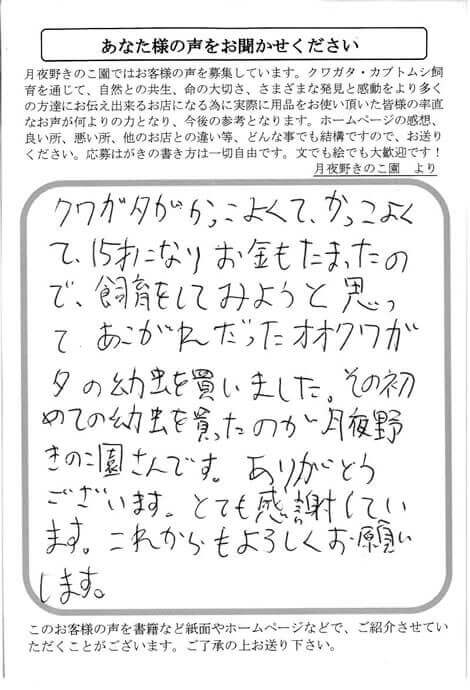 あなた様の声をお聞かせください
月夜野きのこ園ではお客様の声を募集しています。クワガタ・カブトムシ飼
育を通じて、自然との共生、命の大切さ、さまざまな発見と感動をより多く
の方達にお伝え出来るお店になる為に実際に用品をお使い頂いた皆様の率直
なお声が何よりの力となり、今後の参考となります。ホームページの感想、
良い所、悪い所、他のお店との違い等、どんな事でも結構ですので、お送り
ください。応募はがきの書き方は一切自由です。文でも絵でも大歓迎です！
月夜野きのこ園　より
クワガタがかっこよくて、かっこよく
て、15才になりお金もたまったの
で、飼育をしてみようと思っ
て あこがれだったオオクワガ
タの幼虫を買いました。その初
めての幼虫を買ったのが月夜野
きのこ園さんです。ありがとう
ございます。とても感謝してい
ます。これからもよろしくお願い
します。
このお客様の声を書籍など紙面やホームページなどで、ご紹介させてい
ただくことがございます。ご了承の上お送り下さい。